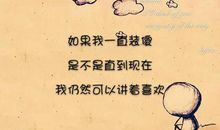 如果我一直装傻
是不是直到现在
我仍然可以讲着喜欢